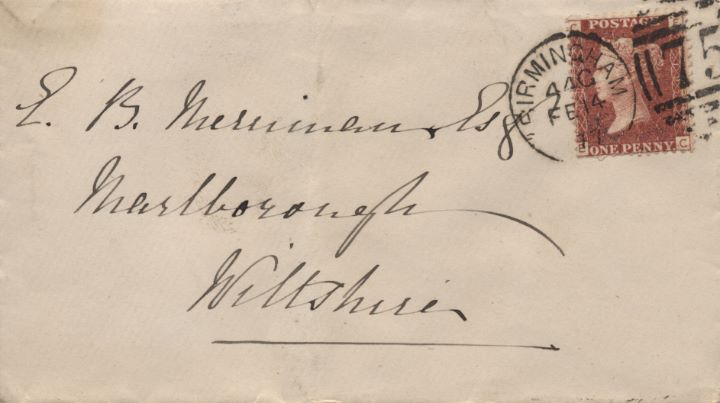 E. B. Merriman, Esq
Marlborough
Wiltshire
BIRMINGHAM
FE 14
POSTAGE
ONE PENNY
E C
75